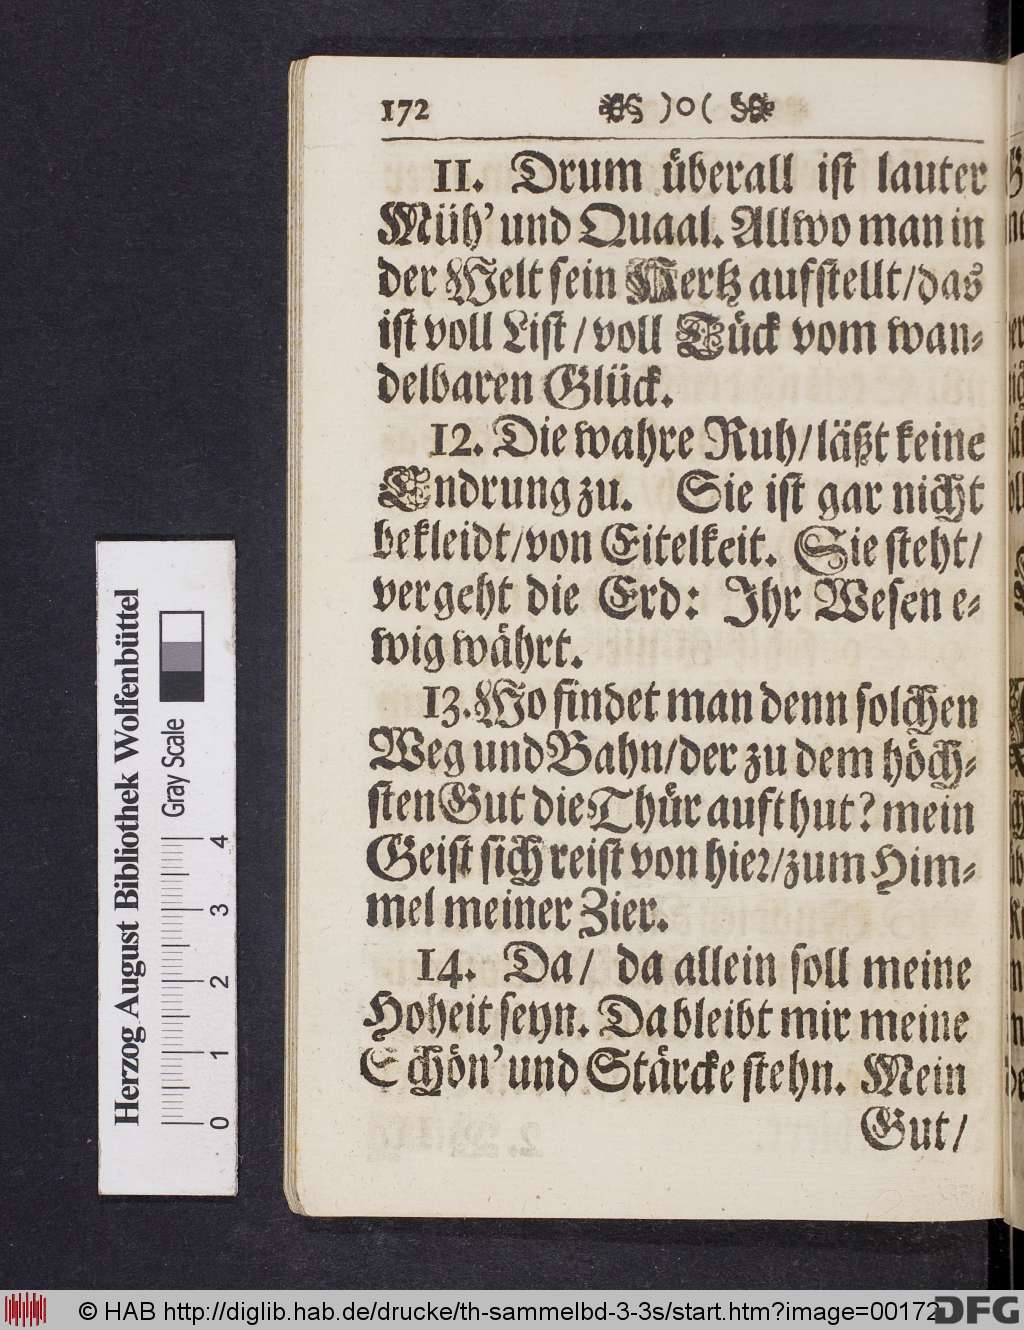 172 )o(
11. Drum überall ist lauter
Müh' und Quaal. Allwo man in
der Welt sein Hertz aufstellt/das
ist voll List/voll Tück vom wan-
delbaren Glück.
12. Die wahre Ruh/läßt keine
Endrung zu. Sie ist gar nicht
bekleidt/von Eitelkeit. Sie steht/
vergeht die Erd: Ihr Wesen e-
wig währt.
13. Wo findet man denn solchen
Weg und Bahn/der zu dem höch-
sten Gut die Thür aufthut? mein
Geist sich reist von hier/zum Him-
mel meiner Zier.
14. Da/ da allein soll meine
Hoheit seyn. Da bleibt mir meine
Schön' und Stärcke stehn. Mein
Gut/
Herzog August Bibliothek Wolfenbüttel
Gray Scale
0 1 2 3 4
© HAB http://diglib.hab.de/drucke/th-sammelbd-3-3s/start.htm?image=00172
DFG